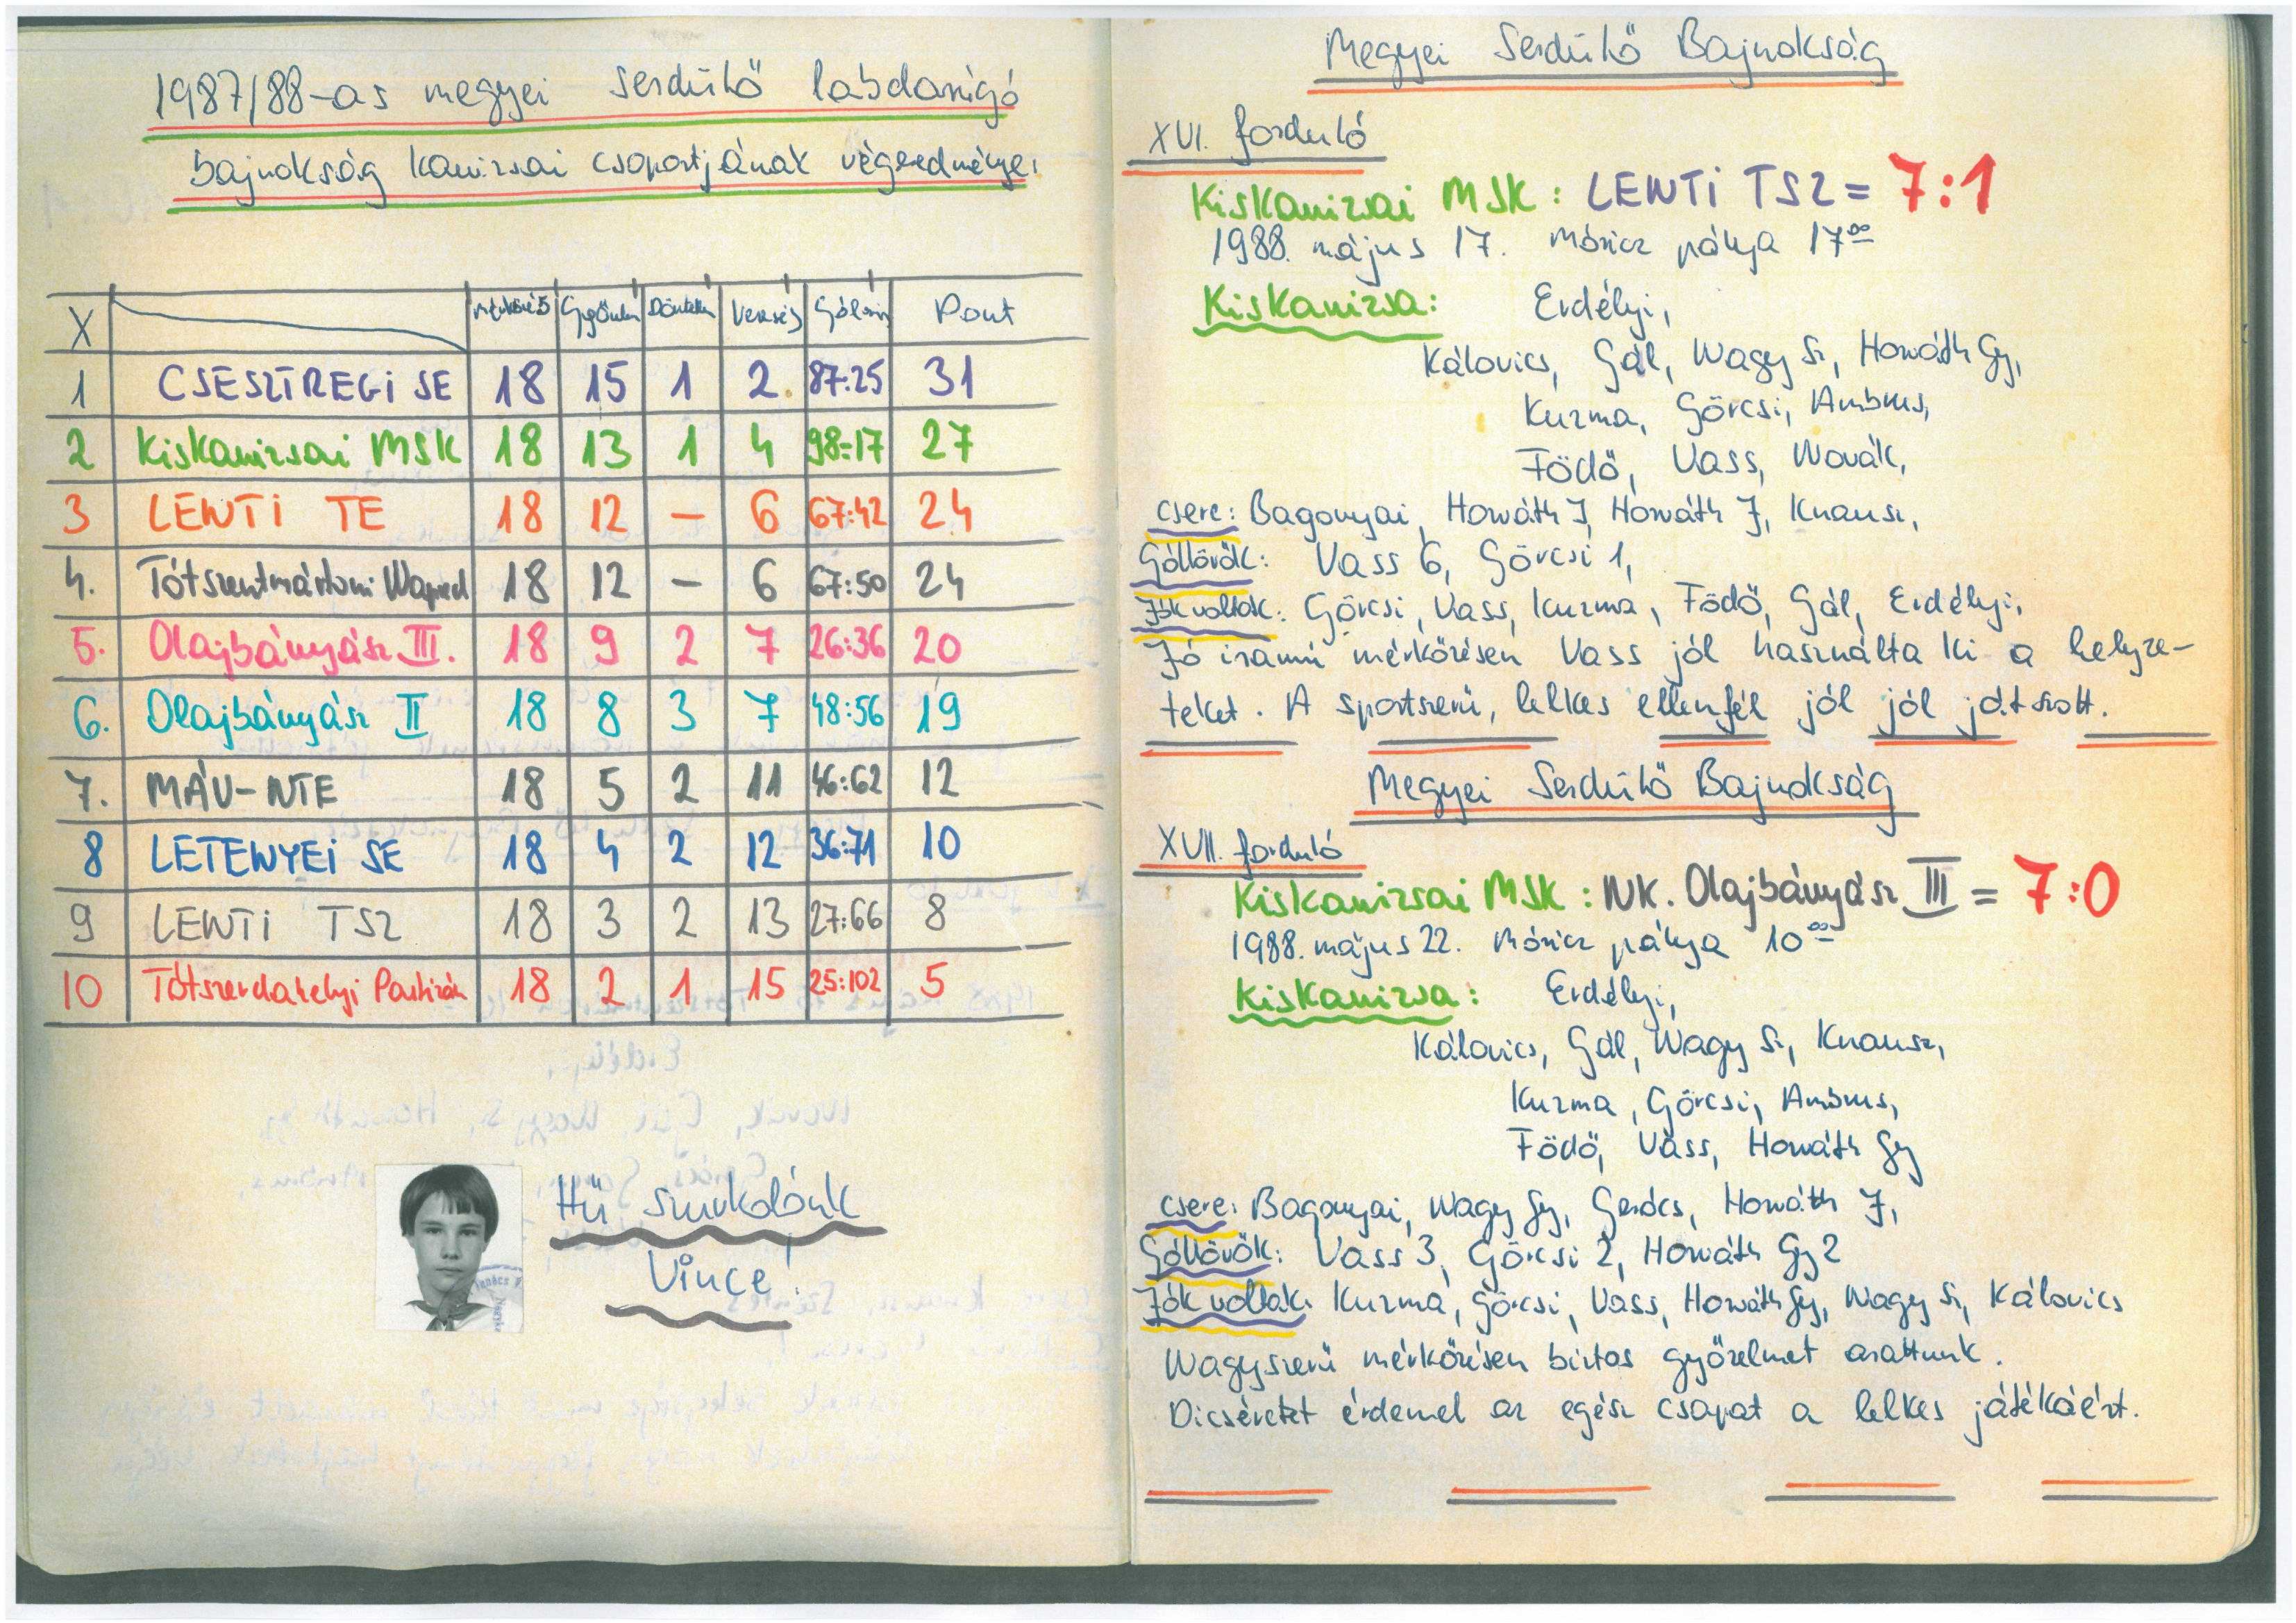 1987/88-as megyei serdülő labdarúgó
bajnokság kanizsai csoportjának végeredménye:
X mérkőzés Győzelem Döntetlen Vereség Gólarány Pont
1 CSESZTREGI SE 18 15 1 2. 87:25 31
2 Kiskanizsai MSK 18 13 1 4 98:17 27
3 LENTI TE 18 12 – 6 67:42 24
4. Tótszentmártoni 18 12 – 6 67:50 24
5. Olajbányász III. 18 9 2 7 26:36 20
6. Olajbányász II 18 8 3 7 48:56 19
7. MÁV-NTE 18 5 2 11 46:62 12
8 LETENYEI SE 18 4 2 12 36:71 10
9 LENTI TSZ 18 3 2 13 27:66 8
10 Tótszerdahelyi Partizán 18 2 1 15 25:102 5
Hű szurkolónk
Vince!
Megyei Serdülő Bajnokság
XVI. forduló
Kiskanizsai MSK : LENTI TSZ = 7:1
1988. május 17. Móricz pálya 17⁰⁰
Kiskanizsa: Erdélyi,
Kálovics, Gál, Nagy Sz, Horváth Gy,
Kuzma, Görcsi, Ambrus,
Födő, Vass, Novák,
csere: Bagonyai, Horváth I, Horváth J, Knausz,
Góllövők: Vass 6, Görcsi 1,
Jók voltak: Görcsi, Vass, Kuzma, Födő, Gál, Erdélyi,
Jó iramú mérkőzésen Vass jól használta ki a helyze-
teket. A sportszerű, lelkes ellenfél jól jól játszott.
Megyei Serdülő Bajnokság
XVII. forduló
Kiskanizsai MSK : NK. Olajbányász III = 7:0
1988. május 22. Móricz pálya 10⁰⁰
Kiskanizsa: Erdélyi,
Kálovics, Gál, Nagy Sz, Knausz,
Kuzma, Görcsi, Ambrus,
Födő, Vass, Horváth Gy
csere: Bagonyai, Nagy Gy, Gerócs, Horváth J,
Góllövők: Vass 3, Görcsi 2, Horváth Gy 2
Jók voltak: Kuzma, Görcsi, Vass, Horváth Gy, Nagy Sz, Kálovics
Nagyszerű mérkőzésen biztos győzelmet arattunk.
Dicséretet érdemel az egész csapat a lelkes játékáért.